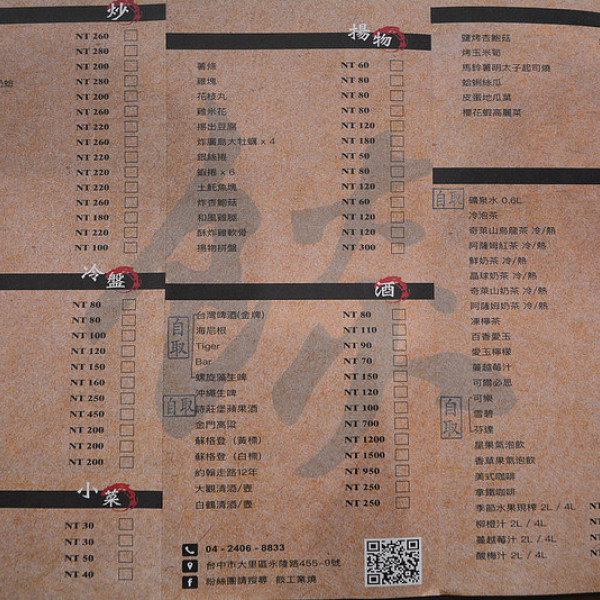 炒
NT 260
NT 280
NT 200
NT 280
NT 200
NT 260
NT 220
NT 260
NT 220
NT 220
NT 220
NT 260
NT 180
NT 220
NT 100
冷盤
NT 80
NT 80
NT 100
NT 120
NT 150
NT 160
NT 250
NT 450
NT 200
NT 200
NT 200
小菜
NT 30
NT 30
NT 50
NT 40
揚物
薯條 NT 60
雞塊 NT 80
花枝丸 NT 80
雞米花 NT 80
揚出豆腐 NT 120
炸廣島大牡蠣 x 4 NT 180
銀絲捲 NT 50
蝦捲 x 6 NT 80
土魠魚塊 NT 120
炸杏鮑菇 NT 60
和風雞腿 NT 120
酥炸雞軟骨 NT 120
揚物拼盤 NT 300
酒
自取
台灣啤酒(金牌) NT 80
海尼根 NT 110
Tiger NT 90
Bar NT 70
螺旋藻生啤 NT 150
沖繩生啤 NT 120
自取
詩莊堡蘋果酒 NT 100
金門高粱 NT 700
蘇格登（黃標） NT 1200
蘇格登（白標） NT 1500
約翰走路12年 NT 950
大觀清酒/壺 NT 250
白鶴清酒/壺 NT 250
04 - 2406 - 8833
台中市大里區永隆路455-9號
粉絲團請搜尋 餤工業燒
鹽烤杏鮑菇
烤玉米筍
馬鈴薯明太子起司燒
蛤蜊絲瓜
皮蛋地瓜葉
櫻花蝦高麗菜
自取
礦泉水 0.6L
冷泡茶
奇萊山烏龍茶 冷/熱
阿薩姆紅茶 冷/熱
鮮奶茶 冷/熱
晶球奶茶 冷/熱
奇萊山奶茶 冷/熱
阿薩姆奶茶 冷/熱
凍檸茶
百香愛玉
愛玉檸檬
蔓越莓汁
可爾必思
自取
可樂
雪碧
芬達
星果氣泡飲
香草果氣泡飲
美式咖啡
拿鐵咖啡
季節水果現榨 2L / 4L
柳橙汁 2L / 4L
蔓越莓汁 2L / 4L
酸梅汁 2L / 4L